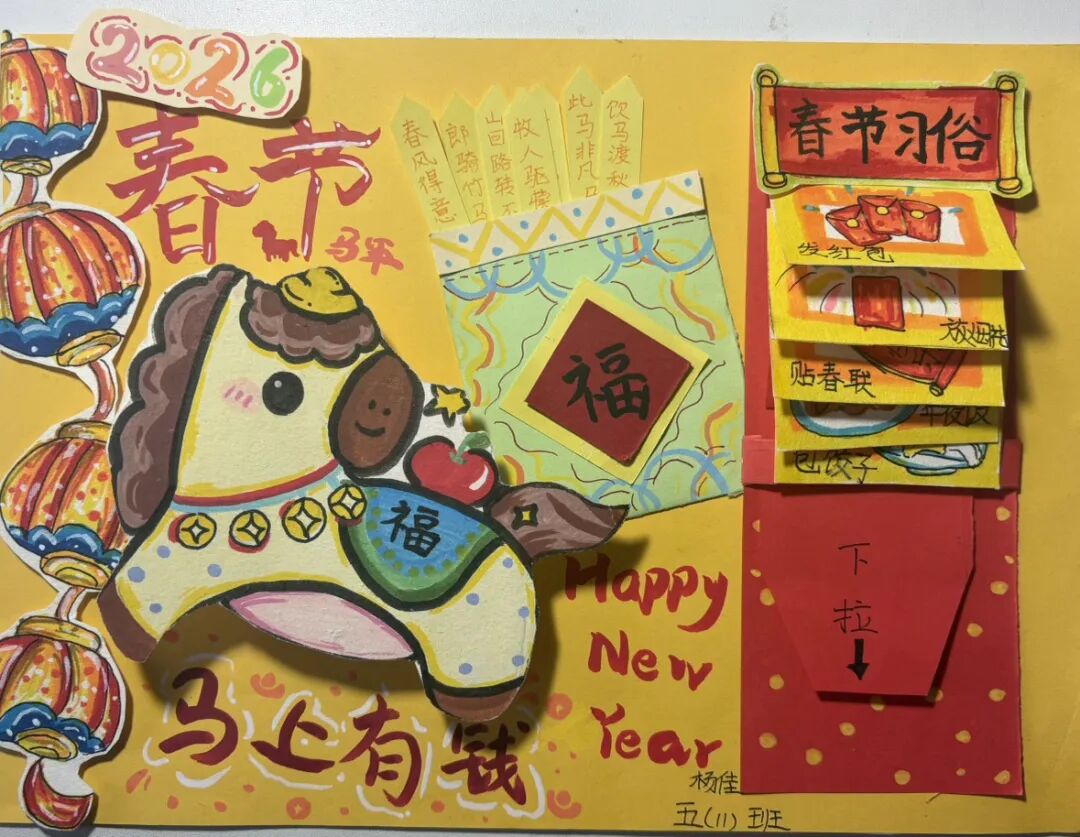 2026
春节
马年
春风得意
郎骑竹马
山回路转不
牧人驱犊
此马非凡
饮马渡秋
福
福
马上有钱
Happy
New
Year
春节习俗
发红包
放烟花
贴春联
年夜饭
包饺子
下
拉
杨佳
五(11)班